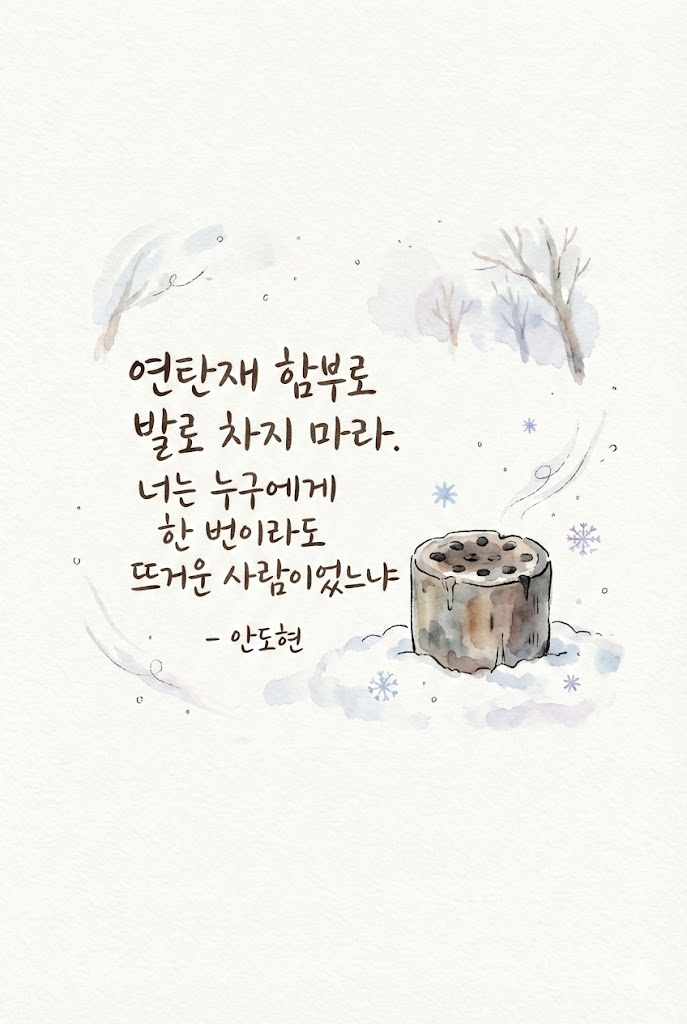 연탄재 함부로
발로 차지 마라.
너는 누구에게
한 번이라도
뜨거운 사람이었느냐
- 안도현